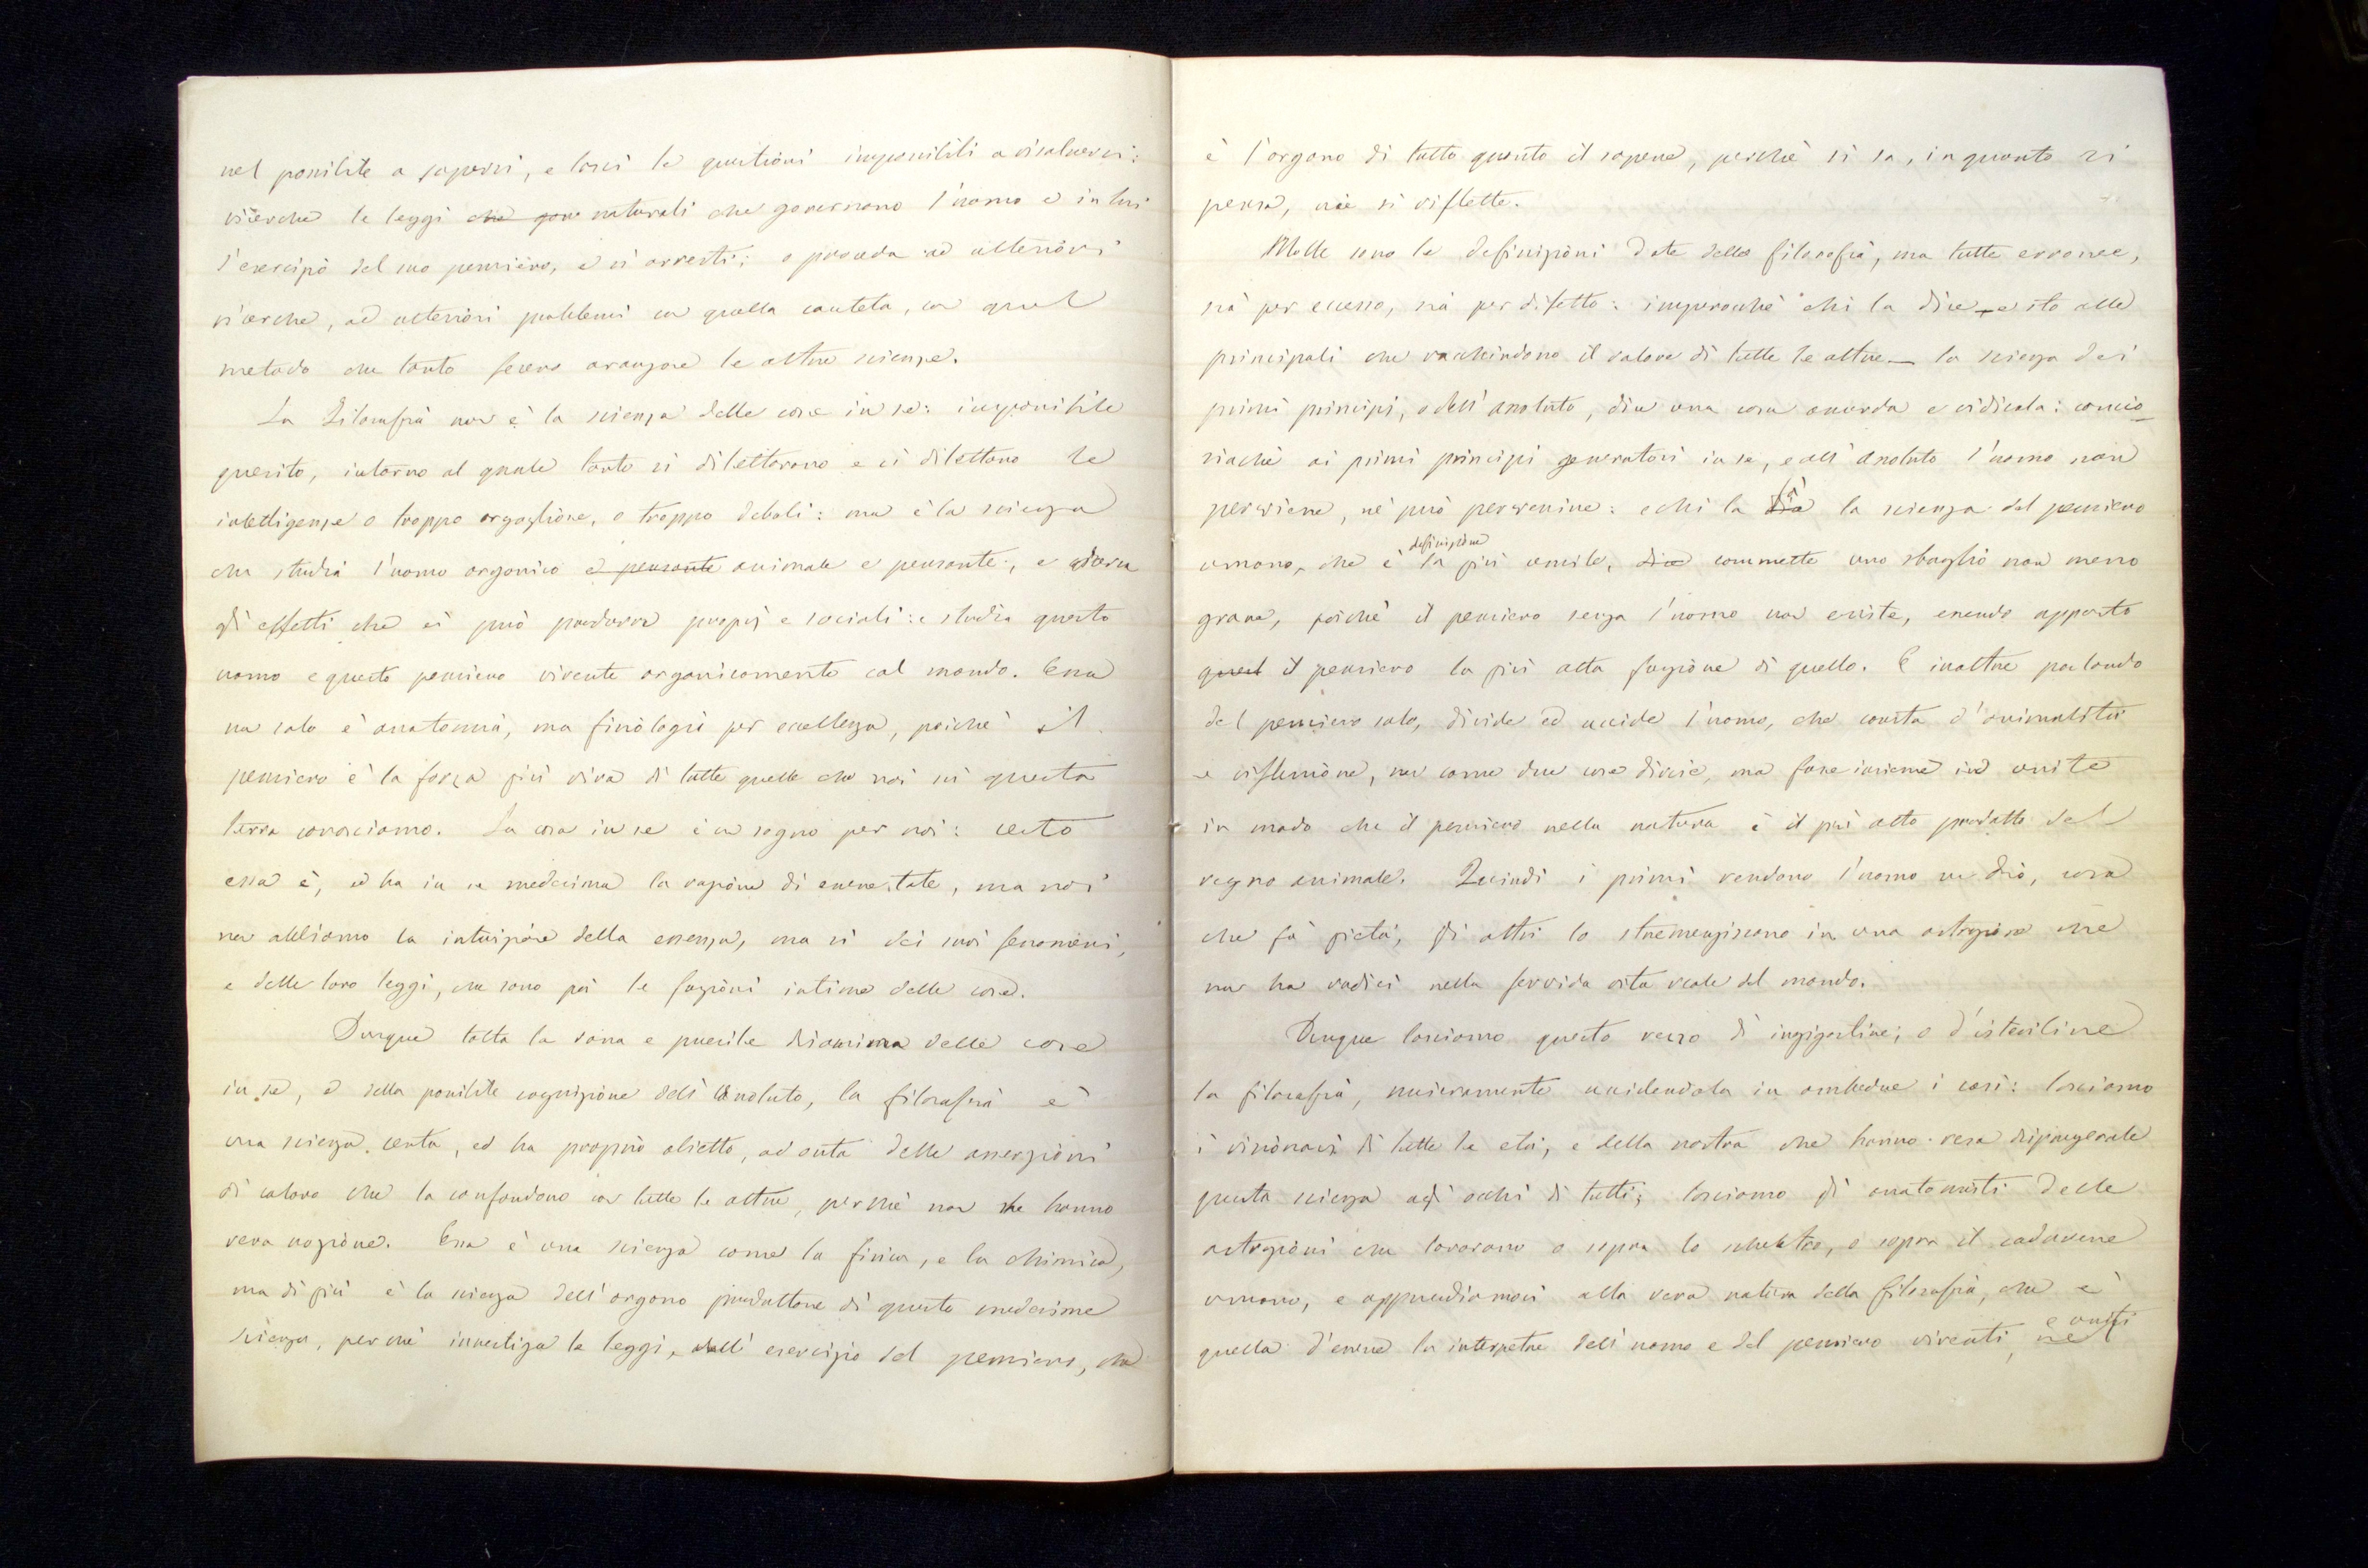 nel possibile a sapersi, e lasci le questioni impossibili a risolversi:
ricerche le leggi che gov naturali che governano l'uomo e in lui
l'esercizio del suo pensiero, e si arresti; o proceda ad ulteriori
ricerche, ad ulteriori problemi con quella cautela, con quel
metodo che tanto fecero avanzare le altre scienze.
La Filosofia non è la scienza delle cose in se: impossibile
quesito, intorno al quale tanto si dilettarono e si dilettono le
intelligenze o troppo orgogliose, o troppo deboli: ma è la scienza
che studia l'uomo organico e pensante animale e pensante, e
gli effetti che ei può produrre proprj e sociali: e studia questo
uomo e questo pensiero vivente organicamente col mondo. Essa
non solo è anatomia, ma fisiologia per eccellenza, poichè il
pensiero è la forza più viva di tutte quelle che noi su questa
terra conosciamo. La cosa in se è un sogno per noi: certo
essa è, ed ha in se medesima la ragione di essere tale, ma noi
non abbiamo la intuizione della essenza, ma sì dei suoi fenomeni,
e delle loro leggi, che sono poi le funzioni intime delle cose.
Dunque tolta la vana e puerile disamina delle cose
in se, e della possibile cognizione dell'Assoluto, la filosofia è
una scienza certa, ed ha proprio obietto, ad onta delle asserzioni
di coloro che la confondono con tutte le altre, perchè non ne hanno
vera nozione. Essa è una scienza come la fisica, e la chimica,
ma di più è la scienza dell'organo produttore di queste medesime
scienze, perchè investiga le leggi, dell'esercizio del pensiero, che
è l'organo di tutto quanto il sapere, perchè si sa, in quanto si
pensa, cioè si riflette.
Molte sono le definizioni date della filosofia, ma tutte erronee,
sia per eccesso, sia per difetto: imperocchè chi la dice, e sto alle
principali che racchiudono il valore di tutte le altre — la scienza dei
primi principi, o dell'assoluto, dice una cosa assurda e ridicola: concio-
siachè ai primi principi generatori in se, e all'assoluto l'uomo non
perviene, nè può pervenire: e chi la fa la scienza del pensiero
umano, che è la definizione più umile, dice commette uno sbaglio non meno
grave, poichè il pensiero senza l'uomo non esiste, essendo appunto
quel il pensiero la più alta funzione di quello. E inoltre parlando
del pensiero solo, divide ed uccide l'uomo, che consta d'animalità
e riflessione, non come due cose divise, ma fuse insieme ed unite
in modo che il pensiero nella natura è il più alto prodotto del
regno animale. Quindi i primi rendono l'uomo un dio, cosa
che fa pietà, gli altri lo stremenziscono in una astrazione che
non ha radici nella fervida vita reale del mondo.
Dunque lasciamo questo vezzo di ingigantire; o d'isterilire
la filosofia, miseramente uccidendola in ambedue i casi: lasciamo
i visionarj di tutte le età, e della nostra che hanno resa dispregevole
questa scienza agli occhi di tutti; lasciamo gli anatomisti delle
astrazioni che lavorano o sopra lo scheletro, o sopra il cadavere
umano, e apprendiamoci alla vera natura della filosofia, che è
quella d'essere la interpetre dell'uomo e del pensiero viventi, e uniti nel